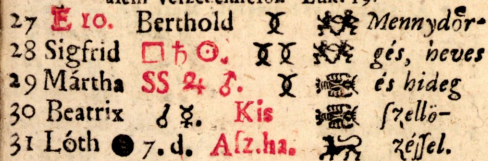 27 E 10. Berthold ♊ ♋ Mennydör-
28 Sigfrid □ ♄ ☉. ♊ ♊ ♋ gés, heves
29 Mártha SS ♃ ♂. ♊ és hideg
30 Beatrix ♂ ☿. Kis ſzellö-
31 Lóth ● 7. d. Aſz.ha. zéſſel.